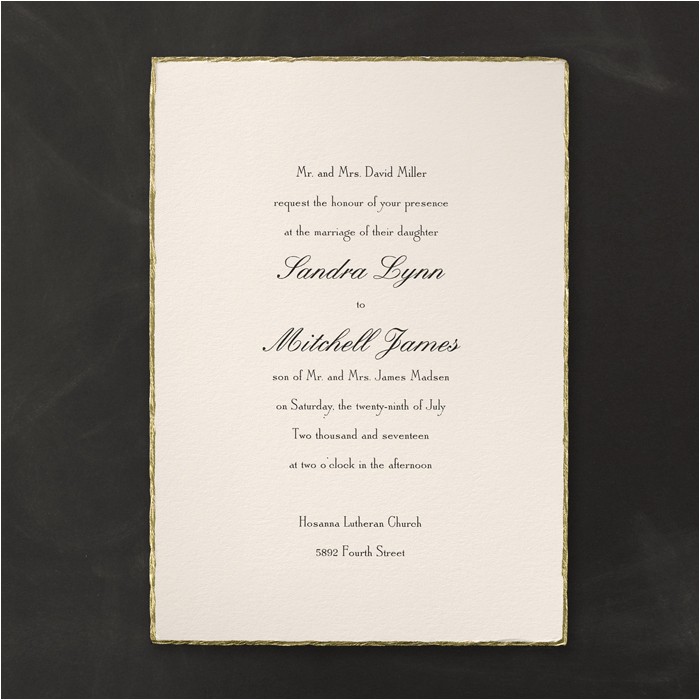 Mr. and Mrs. David Miller
request the honour of your presence
at the marriage of their daughter
Sandra Lynn
to
Mitchell James
son of Mr. and Mrs. James Madsen
on Saturday, the twenty-ninth of July
Two thousand and seventeen
at two o'clock in the afternoon
Hosanna Lutheran Church
5892 Fourth Street